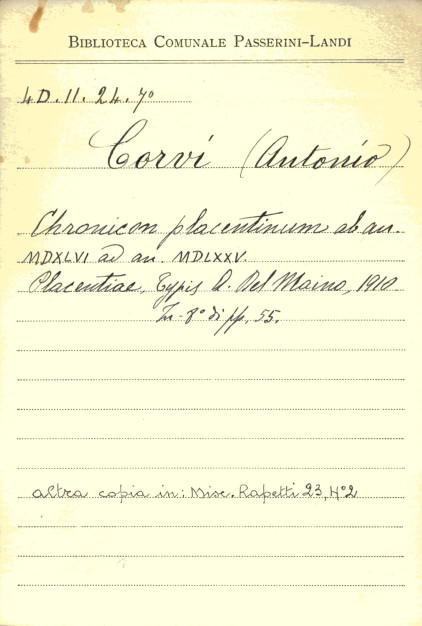 BIBLIOTECA COMUNALE PASSERINI-LANDI
4D.11.24.7º
Corvi (Antonio)
Chronicon placentinum ab an.
MDXLVI ad an. MDLXXV.
Placentiae, Typis A. Del Maino, 1910
In-8º di pp. 55.
altra copia in: Misc. Rapetti 23, Nº2